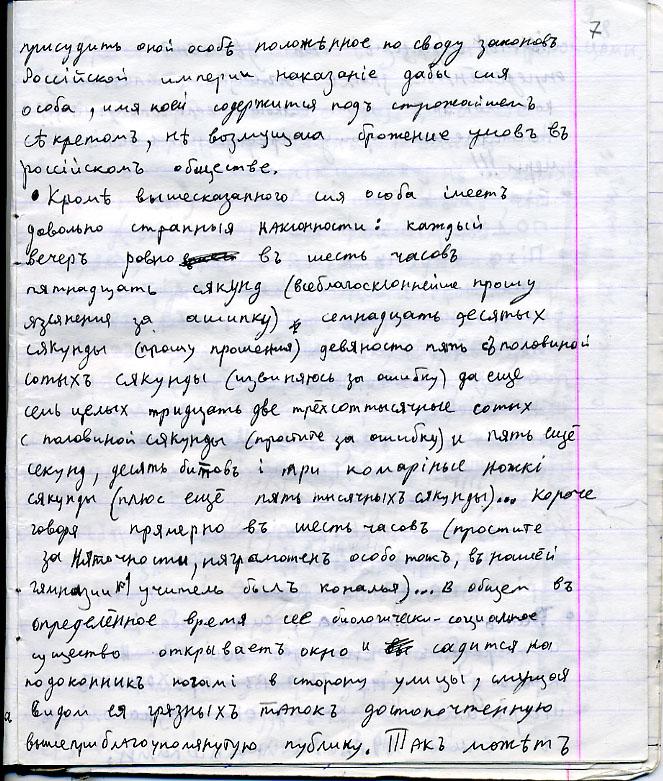 7
присудить оной особѣ положѣнное по своду законовъ
Россiйской империи наказанiе дабы сия
особа, имя коей содержится подъ строжайшемъ
сѣкретомъ, нѣ возмущала брожение умовъ въ
россiйскомъ обществе.
• Кромѣ вышесказанного сия особа iмеетъ
довольно странныя наклонности: каждый
вечеръ ровно въ шесть часовъ
пятнадцать сякунд (всеблагосклоннейше прошу
язвянения за ашипку) семнадцать десятых
сякунды (прошу прошения) девяносто пять съ половиной
сотыхъ сякунды (извиняюсь за ошибку) да ещё
семь целых тридцать две трёхсоттысячные сотых
с половиной сякунды (простите за ошибку) и пять ещё
секунд, десять битовъ i три комариные ножкi
сякунды (плюс ещё пять тысячныхъ сякунды)... короче
говоря прямерно въ шесть часовъ (простите
за няточности, няграмотенъ особо тожъ, въ нашей
гямназии №1 учитель былъ каналья)... В общем въ
определённое время сее биологически-социальное
существо открываетъ окно и садится на
подоконникъ ногамi в сторону улицы, смущая
видом ея грязныхъ тапокъ достопочтенную
вышеприблагоупомянутую публику. Такъ можѣтъ